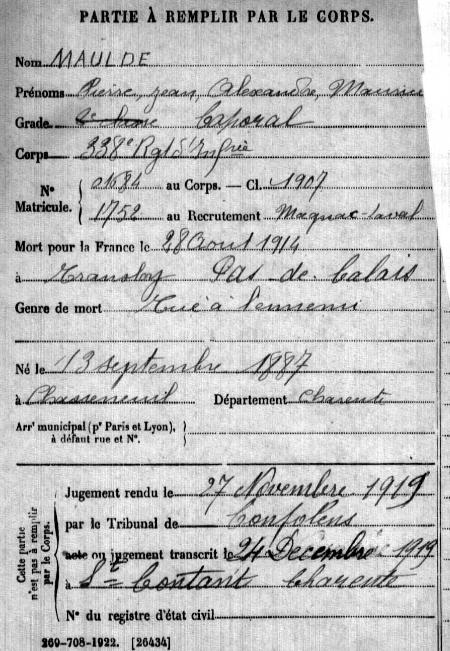 PARTIE À REMPLIR PAR LE CORPS.
Nom MAULDE
Prénoms Pierre, jean, Alexandre,
Grade 2e classe Caporal
Corps 338e Rgt d'Infrie
Nº Matricule. 01684 au Corps. — Cl. 1907
1752 au Recrutement Magnac-Laval
Mort pour la France le 28 Aout 1914
à Transloy Pas de Calais
Genre de mort Tué à l'ennemi
Né le 13 septembre 1887
à Chasseneuil Département Charente
Arrt municipal (pr Paris et Lyon),
à défaut rue et Nº.
Cette partie n'est pas à remplir par le Corps.
Jugement rendu le 27 Novembre 1919
par le Tribunal de Confolens
acte ou jugement transcrit le 24 Décembre 1919
à St Coutant Charente
Nº du registre d'état civil
269-708-1922. [26434]